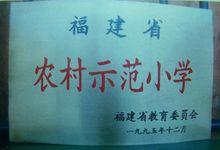 福建省
农村示范小学
福建省教育委员会
一九九五年十二月